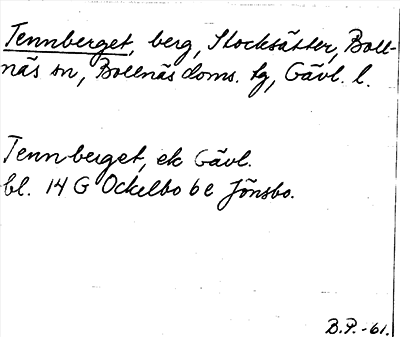 Tennberget, berg, Stocksätter, Boll-
näs sn, Bollnäs doms. tg, Gävl. l.
Tennberget, ek Gävl.
bl. 14 G Ockelbo 6 e Jönsbo.
B.P. -61.